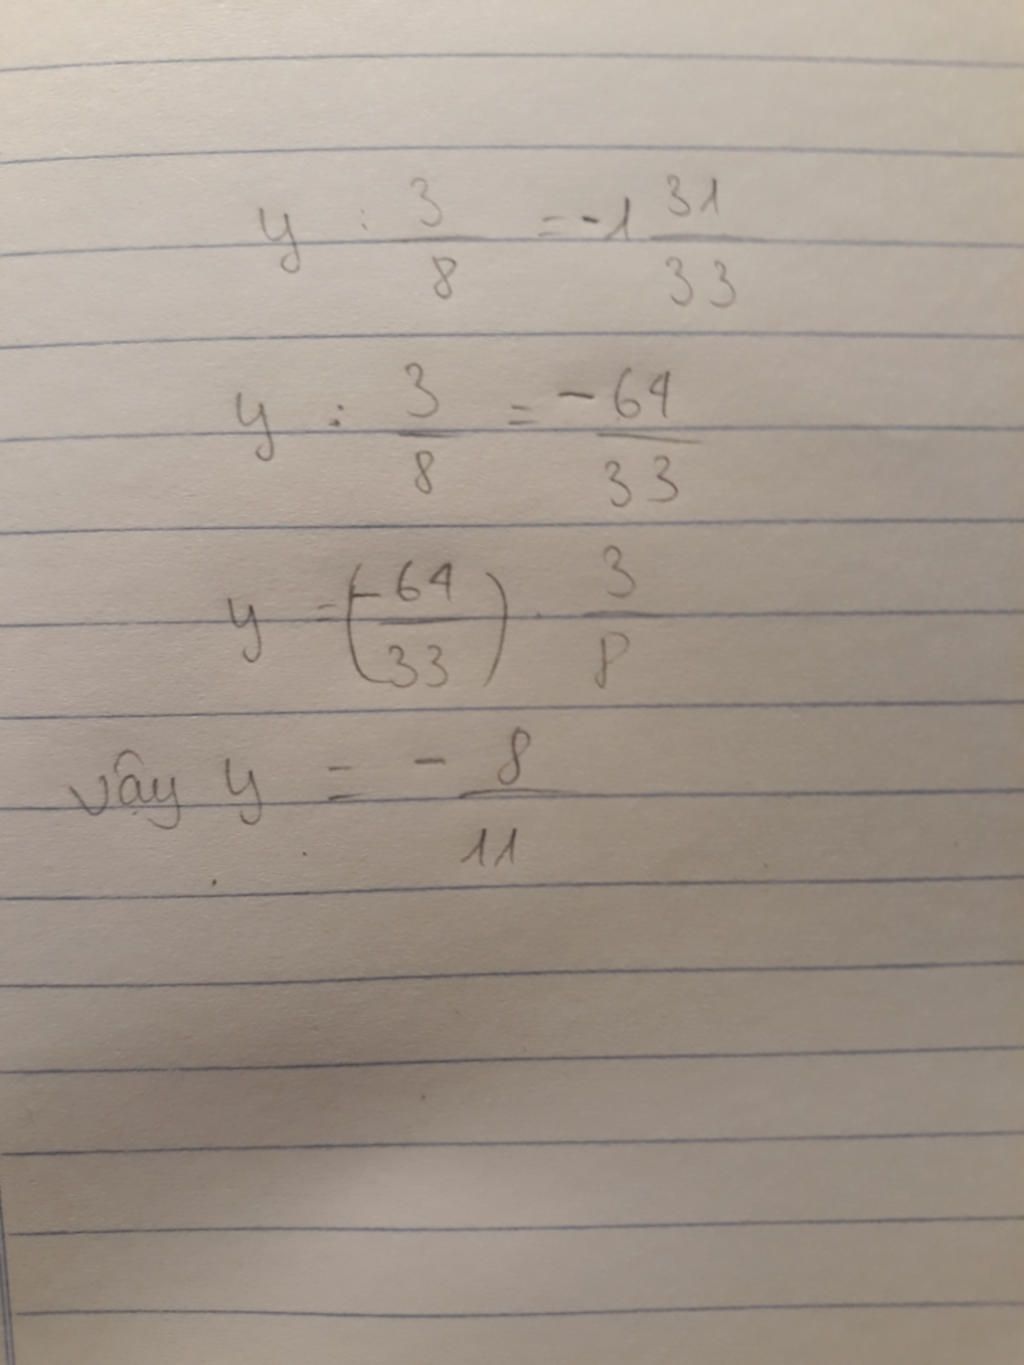 y : 3/8 = -1 31/33
y : 3/8 = -64/33
y = (-64/33) . 3/8
vậy y = - 8/11